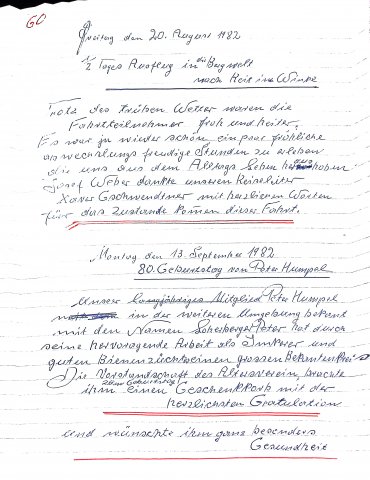 60
Freitag den 20. August 1982
1/2 Tages Ausflug in die Bergwelt
nach Reit im Winkl
Trotz des trüben Wetter waren die
Fahrtteilnehmer froh und heiter.
Es war ja wieder schön ein paar fröhliche
abwechlungs freudige Stunden zu erleben
die uns aus dem Alltags leben heraushoben
Josef Weber dankte unseren Reiseleiter
Xaver Gschwendtner mit herzlichen Worten
für das zustande komen dieser Fahrt.
Montag den 13. September 1982
80. Geburtstag von Peter Humpel
Unser langjähriges Mitglied Peter Humpel
in der weiteren Umgebung bekant
mit den Namen Scherberger Peter hat durch
seine hervoragende Arbeit als Imkerer und
guten Bienenzücht einen grossen Bekantenkreis
Die Vorstandschaft des Altersverein brachte
zum Geburtstag
ihm einen Geschenkkorb mit der
herzlichsten Gratulation
und wünschte ihm ganz besonders
Gesundheit